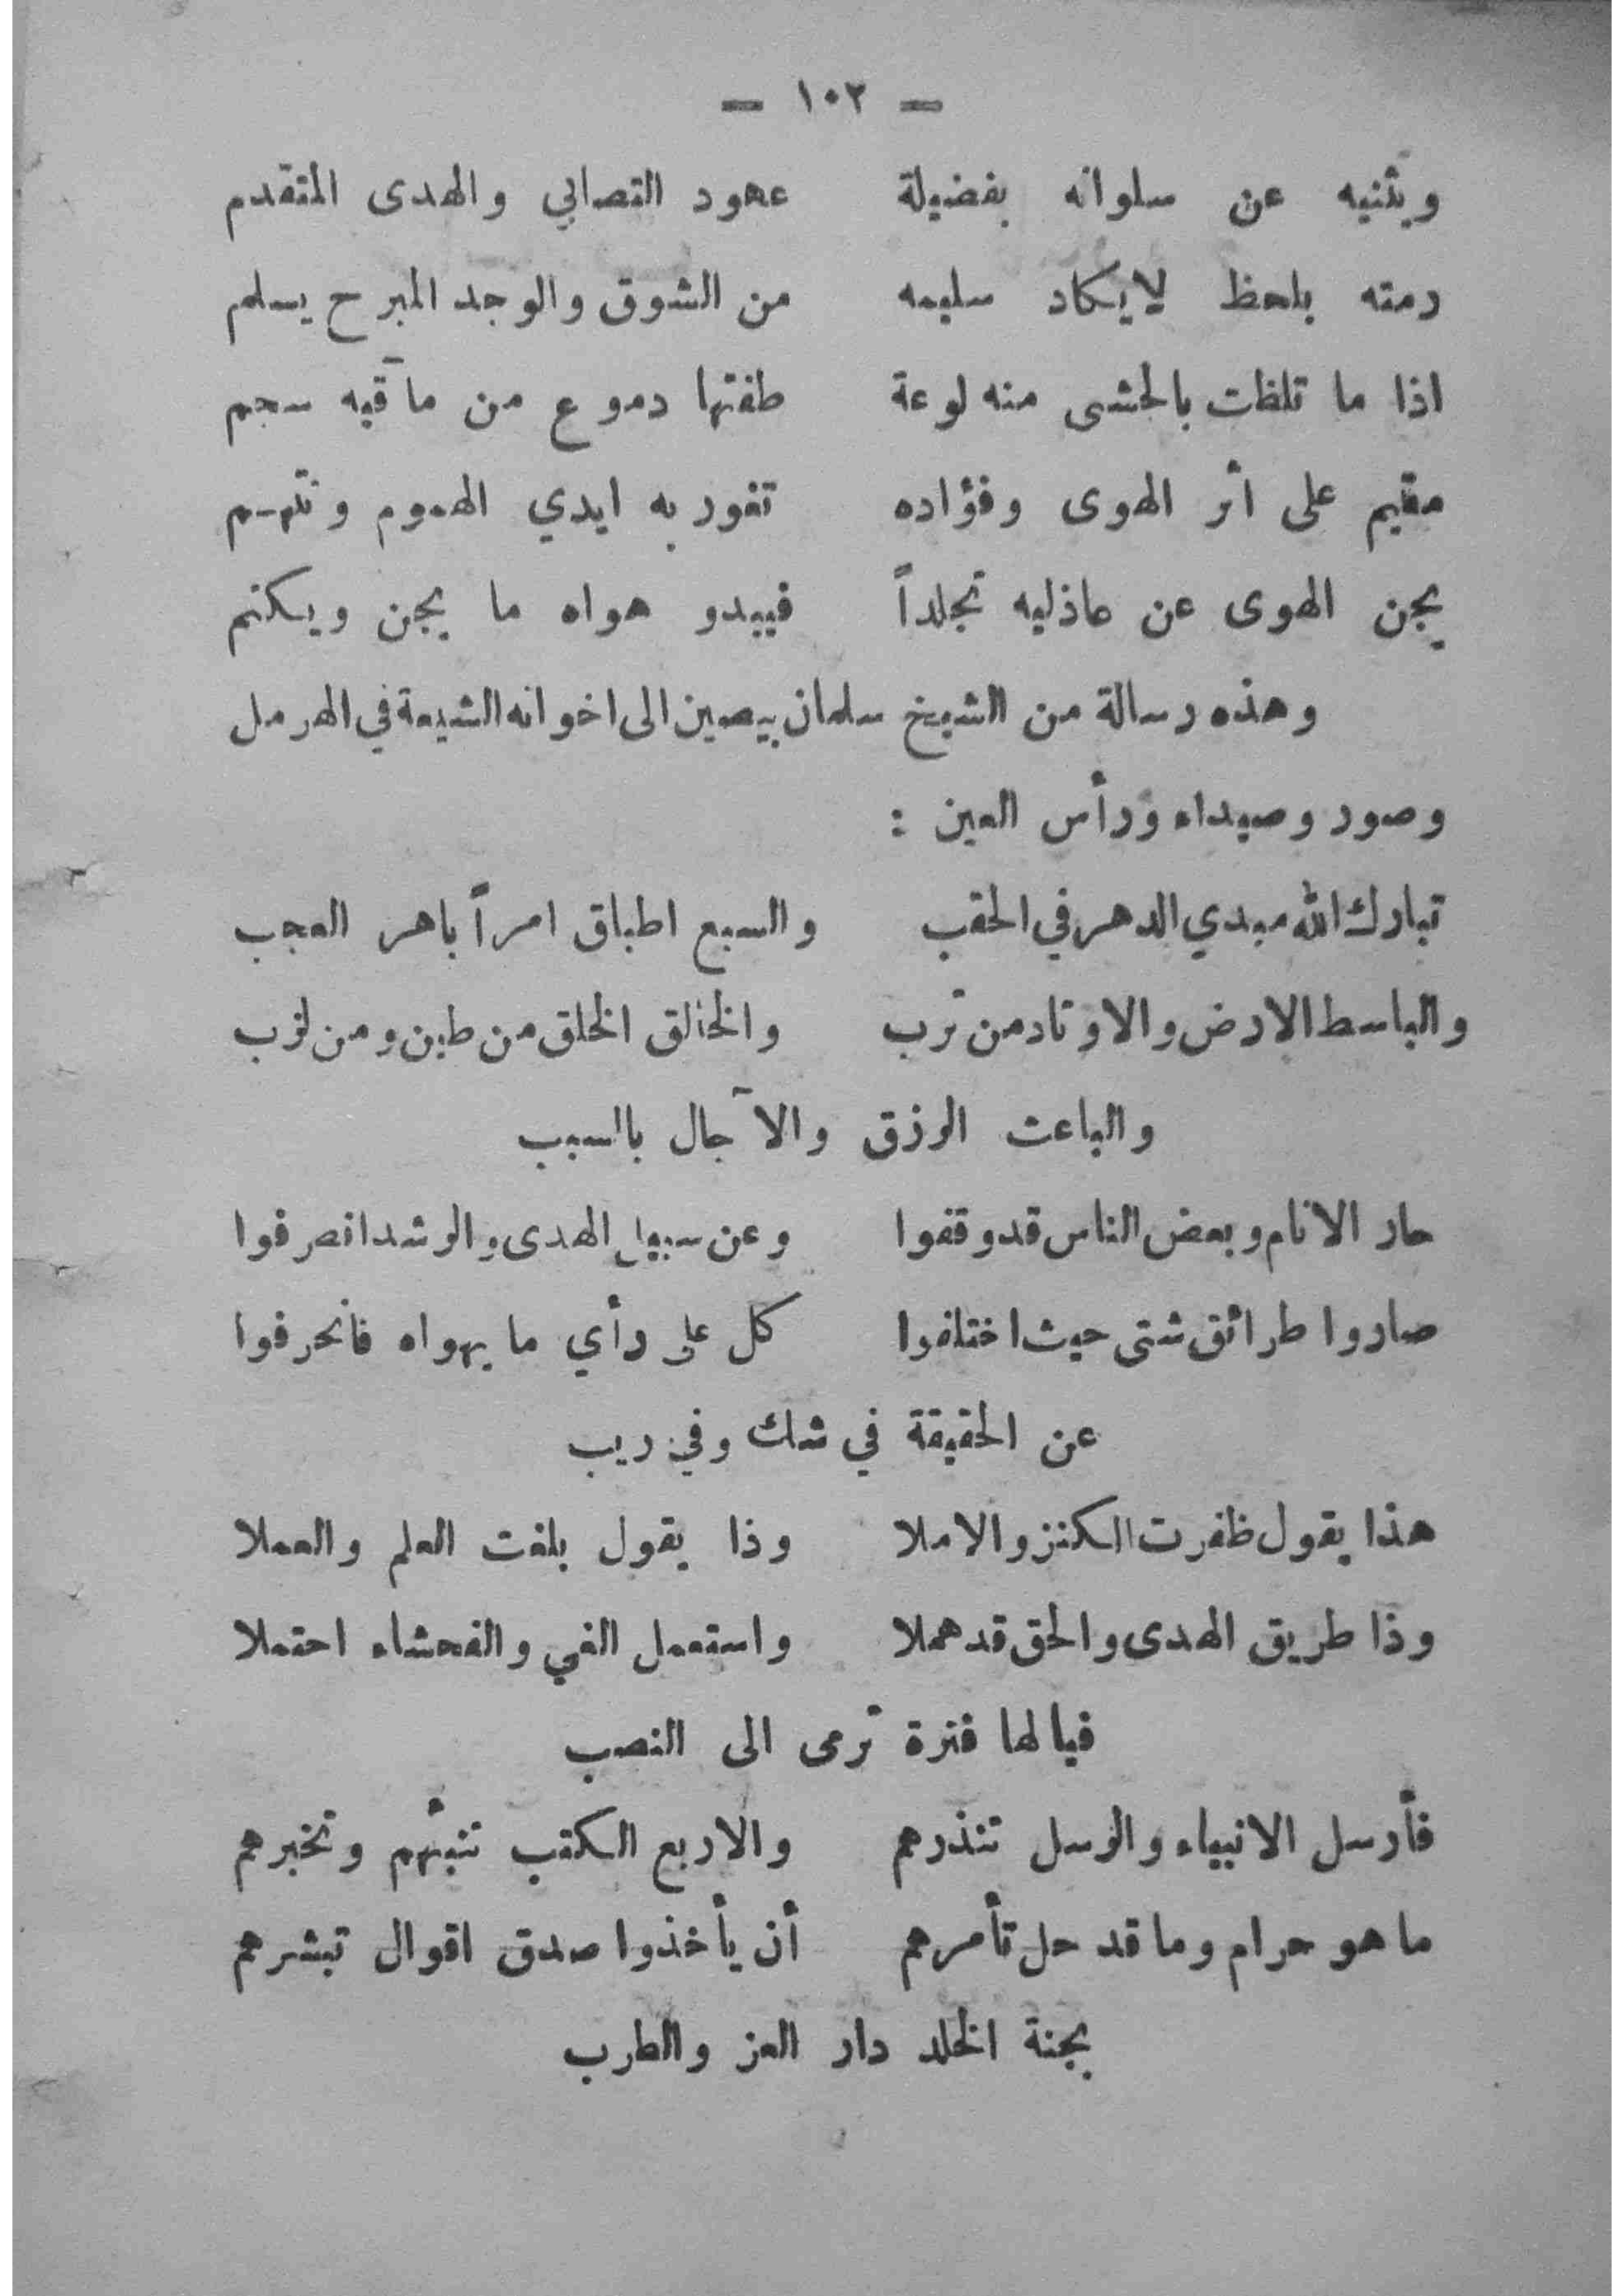 — ١٠٢ —
ويثنيه عن سلوانه بفضيلة عهود التصابي والهدى المتقدم
رمته بلحظ لا يكاد سليمه من الشوق والوجد المبرح يسلم
اذا ما تلظت بالحشى منه لوعة طفتها دموع من مآقيه سجم
مقيم على أثر الهوى وفؤاده تغور به ايدي الهموم وتتهم
يجن الهوى عن عاذليه تجلداً فيبدو هواه ما يجن ويكتم
وهذه رسالة من الشيخ سلمان بيصين الى اخوانه الشيعة في الهرمل
وصور وصيداء ورأس العين :
تبارك الله مبدي الدهر في الحقب والسبع اطباق امراً باهر العجب
والباسط الارض والاوتاد من ترب والخالق الخلق من طين ومن لزب
والباعث الرزق والآجال بالسبب
حار الانام وبعض الناس قد وقفوا وعن سبيل الهدى والرشد انصرفوا
صاروا طرائق شتى حيث اختلفوا كل على رأي ما يهواه فانحرفوا
عن الحقيقة في شك وفي ريب
هذا يقول ظفرت الكنز والاملا وذا يقول بلغت العلم والعملا
وذا طريق الهدى والحق قد هملا واستعمل الغي والفحشاء احتملا
فيا لها فترة ترمى الى النصب
فأرسل الانبياء والرسل تنذرهم والاربع الكتب تنبئهم وتخبرهم
ما هو حرام وما قد حل تأمرهم أن يأخذوا صدق اقوال تبشرهم
بجنة الخلد دار العز والطرب